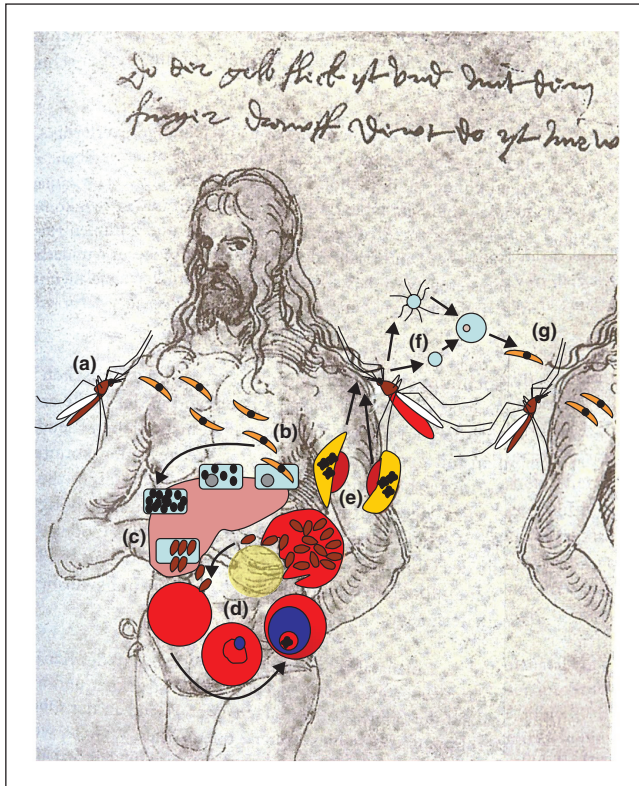 Do der gelb fleck yst vnd mit dem
finger drawff dewt do yst mir w
(a)
(b)
(c)
(d)
(e)
(f)
(g)